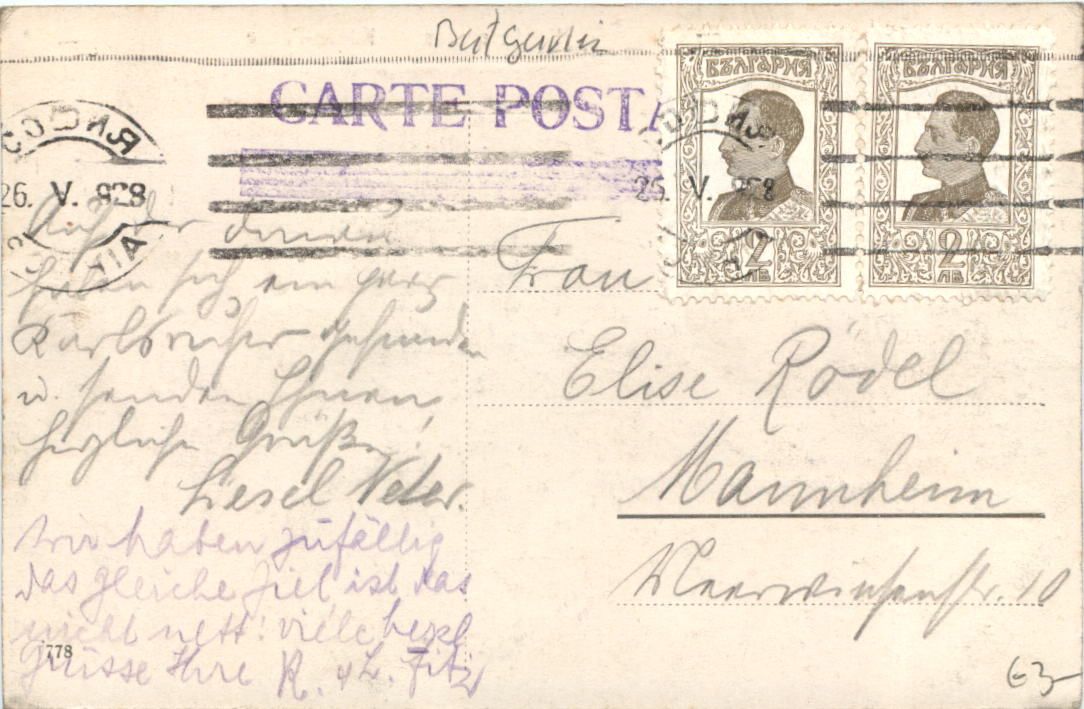 Bulgarien
CARTE POSTA
БЪЛГАРИЯ
БЪЛГАРИЯ
СОФИЯ
26. V. 928
СОФИЯ
26. V. 928
2
ЛВ
2
ЛВ
Auf der Donau
haben sich ein paar
Karlsruher gefunden
u. senden Ihnen
herzliche Grüße!
Liesel Veter.
Wir haben zufällig
das gleiche Ziel ist das
nicht nett! viele herzl
Grüsse Ihre R. u L. Fitz
778
Frau
Elise Rödel
Mannheim
Meerwiesenstr. 10
63